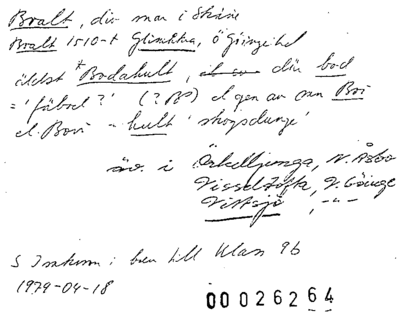 Bralt, där man i Skåne
Bralt 1510-t Glimåkra, Ö Göinge hd
äldst *Bodakult, där bod
= 'fäbod?' (?B°) el gen av mn Boi
el. Bovi - hult 'skogsdunge'
äv. i Örkelljunga, N. Åsbo
Visseltofta, V. Göinge
Vittsjö, -"-
S Isakson i brev till Klas 96
1979-04-18
00026264